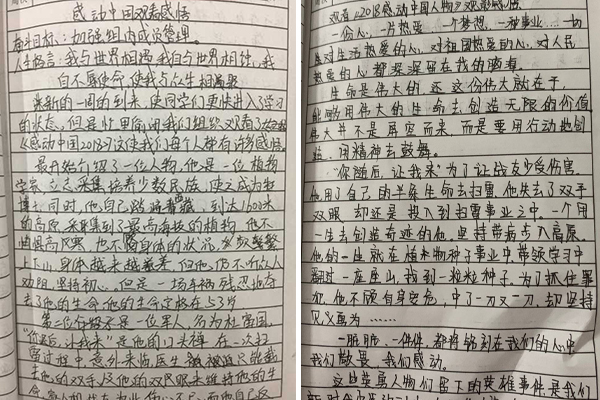 感动中国观看感悟
奋斗目标：加强组内成员管理。
人生格言：我与世界相遇，我自与世界相蚀，我
自不辱使命，使我与众生相遇
崭新的一周的到来，使同学们更快进入了学习
的状态，但是忙里偷闲我们组织观看了
《感动中国2018》这使我们每个人都有许多感悟。
最开始介绍了一位人物，他是一位植物
学家，立志采集培养少数民族，使之成为
博士，同时，他自己踏遍青藏，到达
的高原，采集到了最高海拔的植物，他不
惧狂风严寒，也不顾身体的状况，
上下山，身体越来越差，但他仍不听众人
劝阻，坚持初心，但是一场车祸残忍地夺
去了他的生命，他的生命定格在53岁
第二位介绍不是一位军人，名为杜富国，
“你退后，让我来”是他的口头禅，在一次扫
雷过程中，意外来临，医生被迫只能截
去他的双手及他的双眼来维持他的生
观看《2018感动中国人物》观影感悟。
一份人，一片热爱……一个梦想，一种事业……一切
是对生活热爱的心，对祖国热爱的心，对人民
热爱的心都深深留在我的脑海。
生命是伟大的，还这份伟大就在于，
能够用伟大的生命去创造无限的价值，
伟大并不是再空而来，而是要用行动地创
造，用精神去鼓舞。
“你随后，让我来”为了让战友少受伤害，
他用了自己的半条生命去扫雷，他失去了双手
双眼，却还是投入到扫雷事业之中。一个用
一生去创造奇迹的他，坚持带病占入高原，
他的一生就在植木物种子事业中带领学习中
翻过一座座山，找到一粒粒种子，为了抓住罪
犯，他不顾自身安危，中了一刀又一刀，却坚持
见义勇为……
一明明，一件件，都将铭刻在我们的心中
我们敬畏，我们感动。
这些英雄人物们留下的英雄事迹是我们